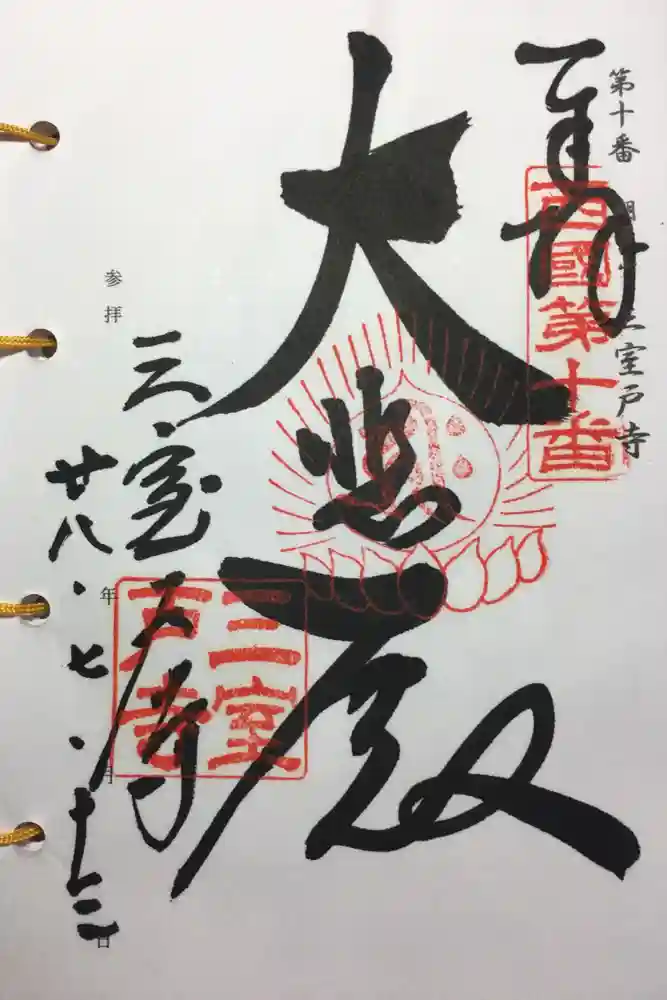 第十番 明星山 三室戸寺
奉拝
西國第十番
大悲殿
三室戸寺
三室戸寺
参拝 年 月 日
廿八・七・十三